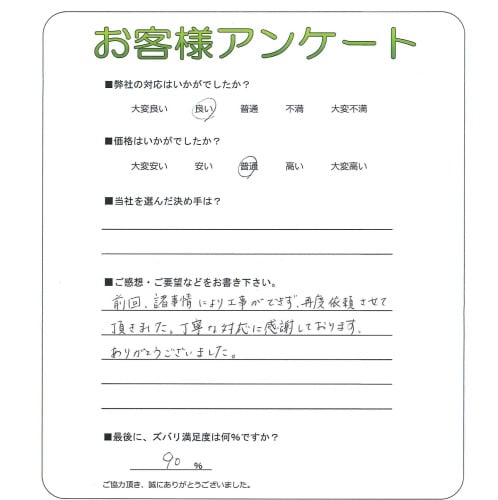 お客様アンケート
■弊社の対応はいかがでしたか?
大変良い 良い 普通 不満 大変不満
■価格はいかがでしたか?
大変安い 安い 普通 高い 大変高い
■当社を選んだ決め手は?
■ご感想・ご要望などをお書き下さい。
前回、諸事情により工事ができず、再度依頼させて
頂きました。丁寧な対応に感謝しております、
ありがとうございました。
■最後に、ズバリ満足度は何%ですか?
90 %
ご協力頂き、誠にありがとうございました。